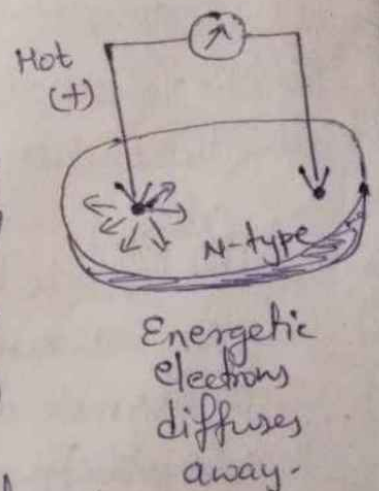 Hot
(+)
N-type
Energetic
electrons
diffuses
away.